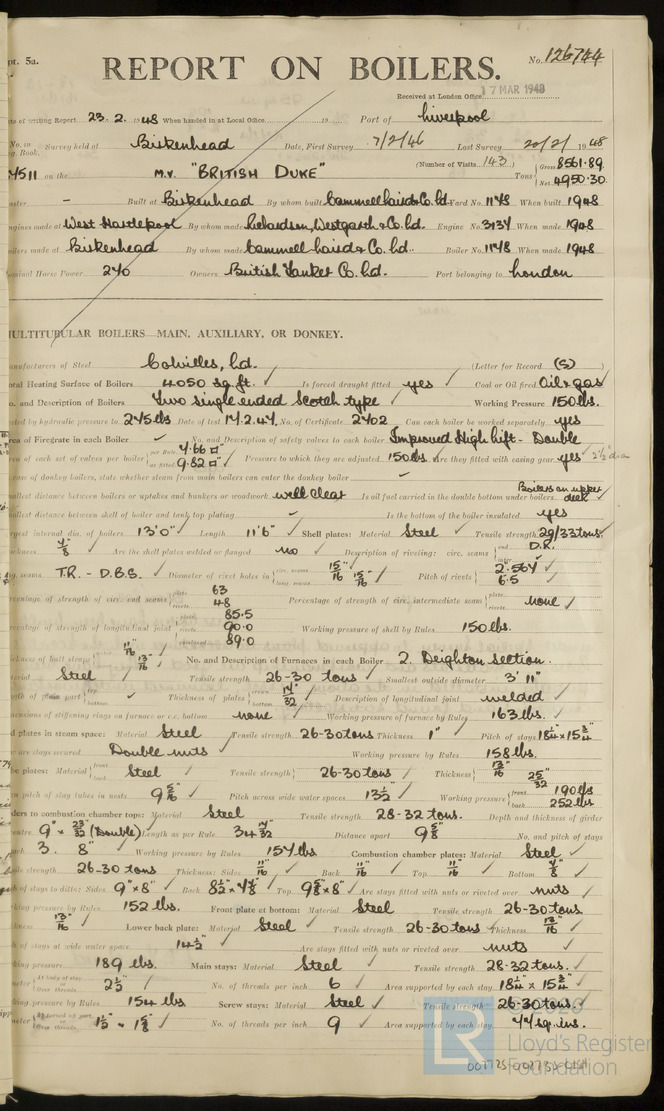 pt. 5a.
No. 126744
REPORT ON BOILERS.
17 MAR 1948
Received at London Office
of writing Report 23. 2. 1948 When handed in at Local Office 19 Port of Liverpool
No. in Survey held at Birkenhead Date, First Survey 7/2/46 Last Survey 20/2/ 1948
g. Book.
(Number of Visits 143)
Gross 8561.89
on the M.V. "BRITISH DUKE" Tons
Net 4950.30
aster – Built at Birkenhead By whom built Cammell Laird & Co. Ld. Yard No. 1178 When built 1948
ngines made at West Hartlepool By whom made Richardson, Westgarth & Co. Ld. Engine No. 3137 When made 1948
oilers made at Birkenhead By whom made Cammell Laird & Co. Ld. Boiler No. 1178 When made 1948
ominal Horse Power 270 Owners British Tanker Co. Ld. Port belonging to London
MULTITUBULAR BOILERS—MAIN, AUXILIARY, OR DONKEY.
anufacturers of Steel Colvilles, Ld. (Letter for Record (S) )
otal Heating Surface of Boilers 4050 sq. ft. ✓ Is forced draught fitted yes ✓ Coal or Oil fired Oil & gas
o. and Description of Boilers Two single ended Scotch type ✓ Working Pressure 150 lbs.
ted by hydraulic pressure to 275 lbs Date of test No. of Certificate 2702 Can each boiler be worked separately yes
rea of Firegrate in each Boiler ✓ No. and Description of safety valves to each boiler Improved High Lift - Double
rea of each set of valves per boiler per Rule 7.66 □" as fitted 9.82 □" ✓ Pressure to which they are adjusted 150 lbs ✓ Are they fitted with easing gear yes ✓ 2½" dia
ase of donkey boilers, state whether steam from main boilers can enter the donkey boiler –
allest distance between boilers or uptakes and bunkers or woodwork well clear Is oil fuel carried in the double bottom under boilers Boilers on upper deck ✓
allest distance between shell of boiler and tank top plating – Is the bottom of the boiler insulated yes
rgest internal dia. of boilers 13' 0" ✓ Length 11' 6" ✓ Shell plates: Material Steel ✓ Tensile strength 29/33 tons
ickness 7/8 ✓ Are the shell plates welded or flanged no ✓ Description of riveting: circ. seams end D.R.
g. seams T.R. - D.B.S. ✓ Diameter of rivet holes in circ. seams 15/16 long. seams 15/16 ✓ Pitch of rivets 2.564 ✓ 6.5
rcentage of strength of circ. end seams plate 63 rivets 48 Percentage of strength of circ. intermediate seam plate rivets none ✓
rcentage of strength of longitudinal joint plate 85.5 rivets 90.0 combined 89.0 Working pressure of shell by Rules 150 lbs.
ickness of butt straps 11/16" 13/16" No. and Description of Furnaces in each Boiler 2. Deighton section.
terial Steel ✓ Tensile strength 26-30 tons ✓ Smallest outside diameter 3' 11"
ngth of plain part top bottom ✓ Thickness of plates crown bottom 17/32" ✓ Description of longitudinal joint welded ✓
mensions of stiffening rings on furnace or c.c. bottom none ✓ Working pressure of furnace by Rules 163 lbs. ✓
d plates in steam space: Material Steel ✓ Tensile strength 26-30 tons Thickness 1" ✓ Pitch of stays 18¼" x 15¾"
are stays secured Double nuts ✓ Working pressure by Rules 158 lbs.
be plates: Material front back Steel ✓ Tensile strength 26-30 tons ✓ Thickness 13/16" 25/32"
n pitch of stay tubes in nests 9 5/16 ✓ Pitch across wide water spaces 13½" ✓ Working pressure front 190 lbs back 252 lbs
ders to combustion chamber tops: Material Steel Tensile strength 28-32 tons. Depth and thickness of girder
entre 9" x 23/32 (Double) Length as per Rule Distance apart 9 5/8" No. and pitch of stays
ach 3. 8" ✓ Working pressure by Rules 157 lbs Combustion chamber plates: Material Steel ✓
sile strength 26-30 tons Thickness: Sides 11/16" ✓ Back 11/16" ✓ Top 11/16" ✓ Bottom 7/8 ✓
h of stays to ditto: Sides 9" x 8" ✓ Back Top 9 5/8 x 8" ✓ Are stays fitted with nuts or riveted over nuts ✓
king pressure by Rules 152 lbs. Front plate at bottom: Material Steel Tensile strength 26-30 tons
kness 13/16" ✓ Lower back plate: Material Steel ✓ Tensile strength 26-30 tons Thickness 13/16" ✓
h of stays at wide water space 14½" ✓ Are stays fitted with nuts or riveted over nuts ✓
king pressure 189 lbs. Main stays: Material Steel Tensile strength 28-32 tons. ✓
meter At body of stay or Over threads 2½" ✓ No. of threads per inch 6 ✓ Area supported by each stay 18¼" x 15¾"
king pressure by Rules 154 lbs Screw stays: Material Steel ✓ Tensile strength 26-30 tons ✓
meter At turned off part or Over threads 1½" & 1 5/8" ✓ No. of threads per inch 9 ✓ Area supported by each stay 77 sq. ins.
© 2020
LR
Lloyd's Register
Foundation